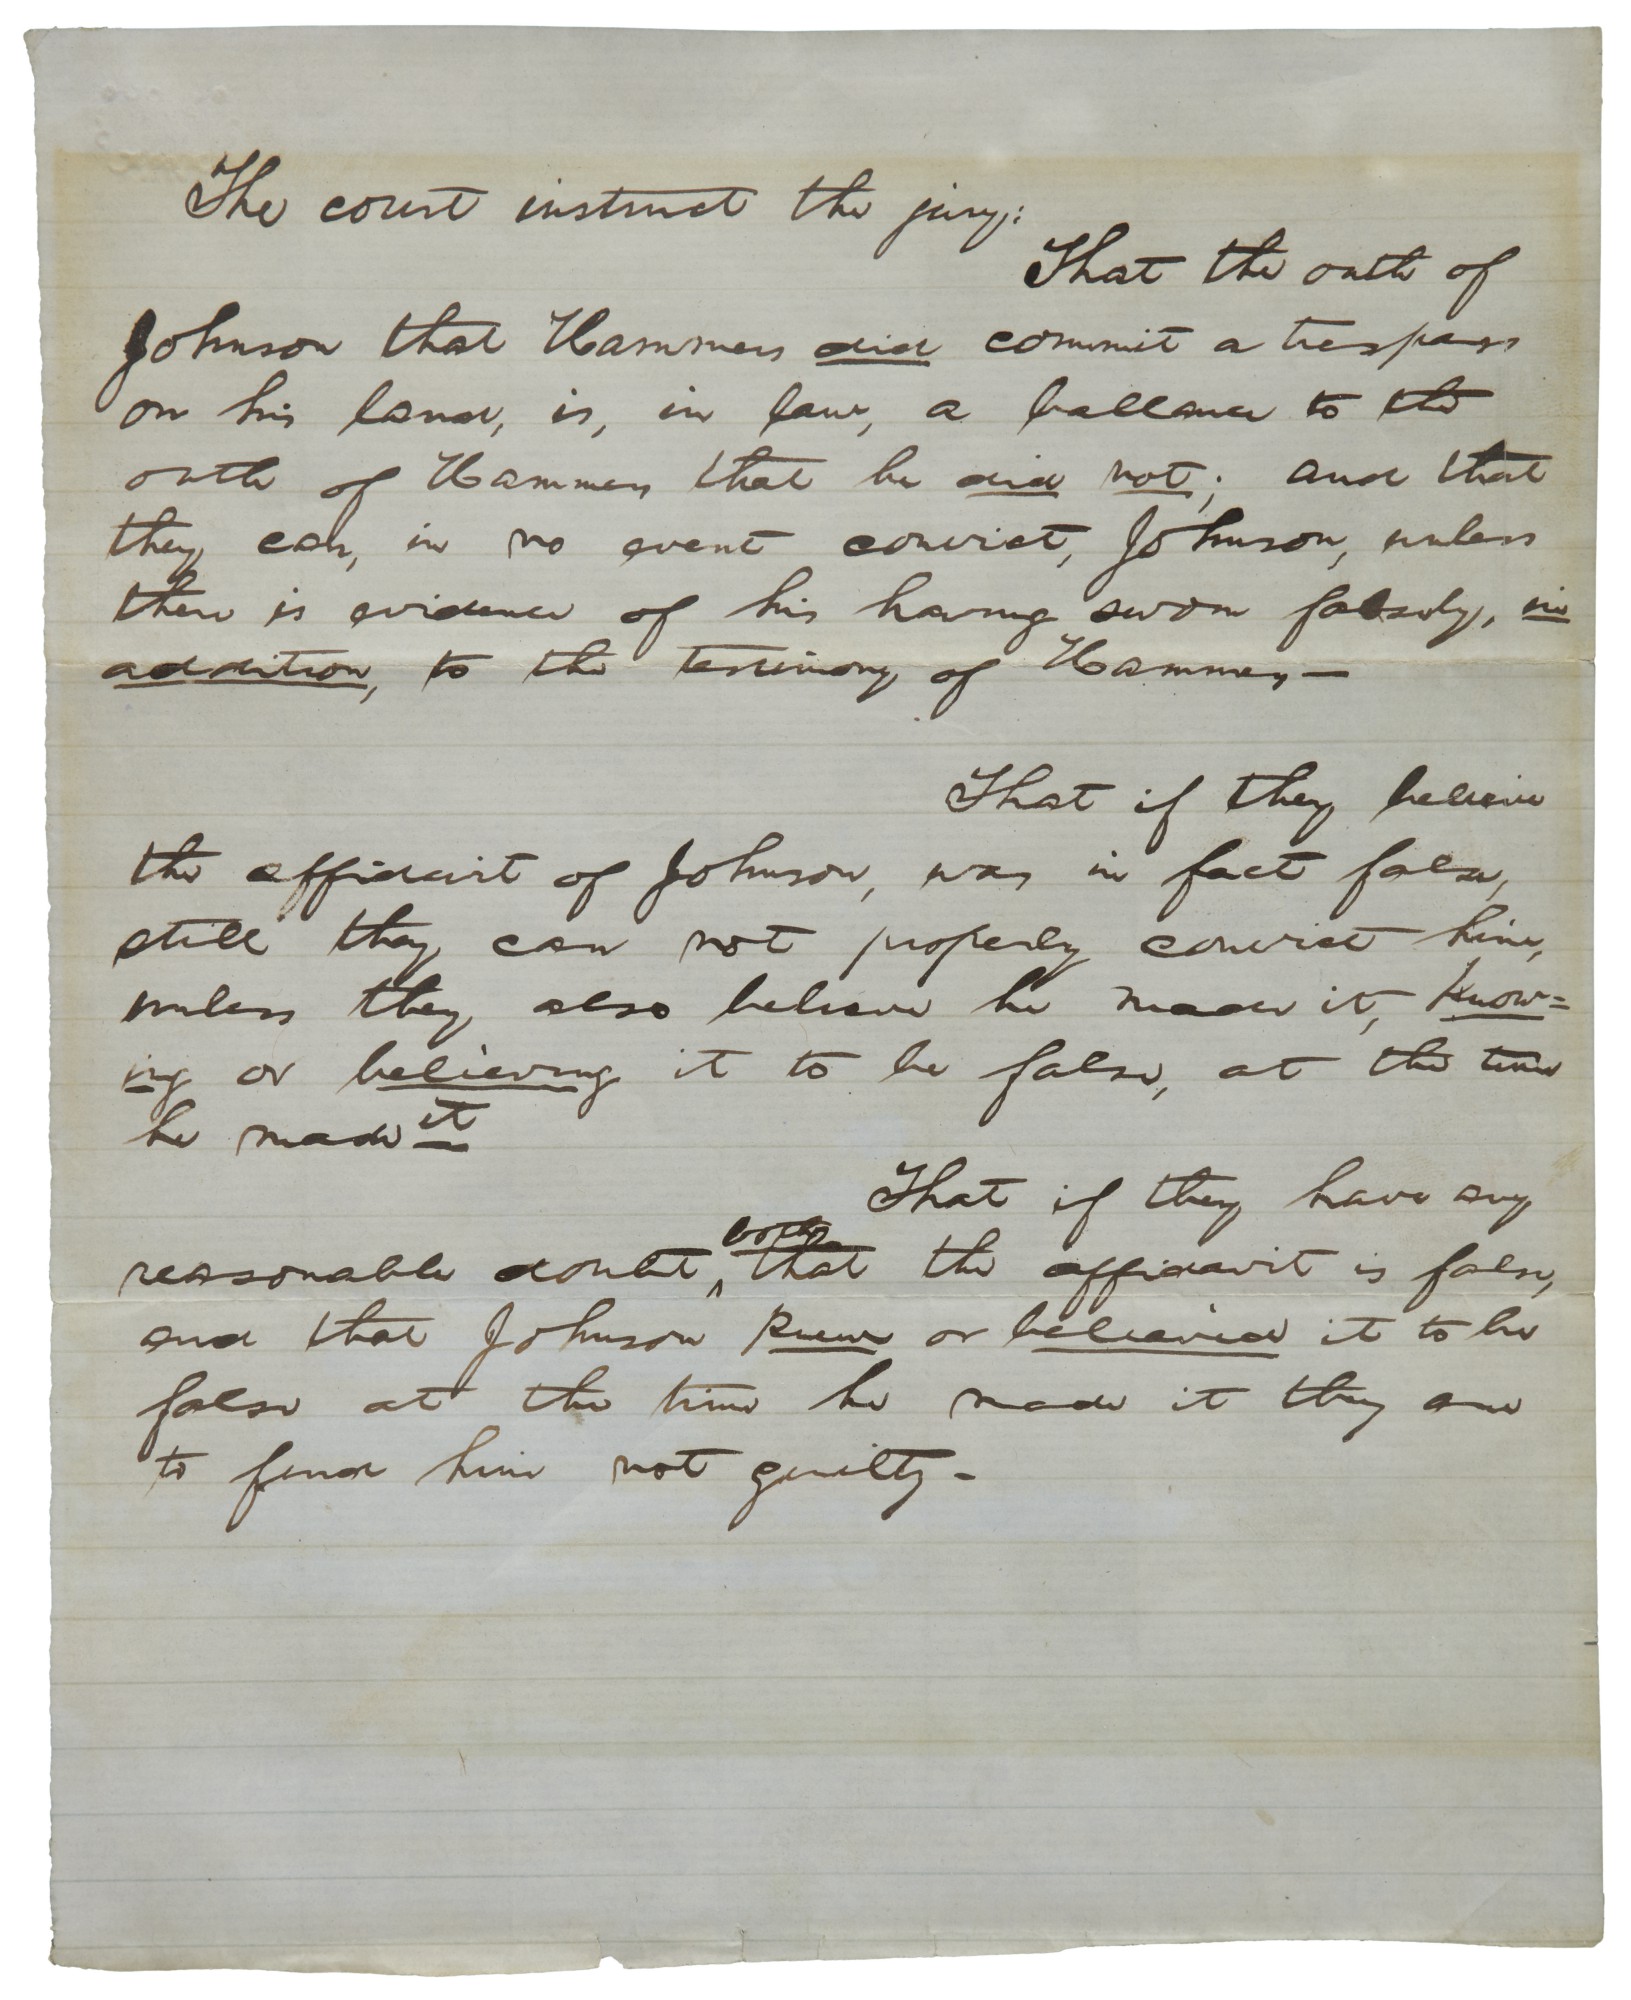 The court instruct the jury:
That the oath of
Johnson that Hammers did commit a trespass
on his land, is, in law, a ballance to the
oath of Hammers that he did not; and that
they can, in no event convict, Johnson, unless
there is evidence of his having sworn falsely, in
addition, to the testimony of Hammers—
That if they believe
the affidavit of Johnson, was in fact false,
still they can not properly convict him,
unless they also believe he made it, know=
ing or believing it to be false, at the time
he made it
That if they have any
reasonable doubt, both that the affidavit is false,
and that Johnson knew or believed it to be
false at the time he made it they are
to find him not guilty-